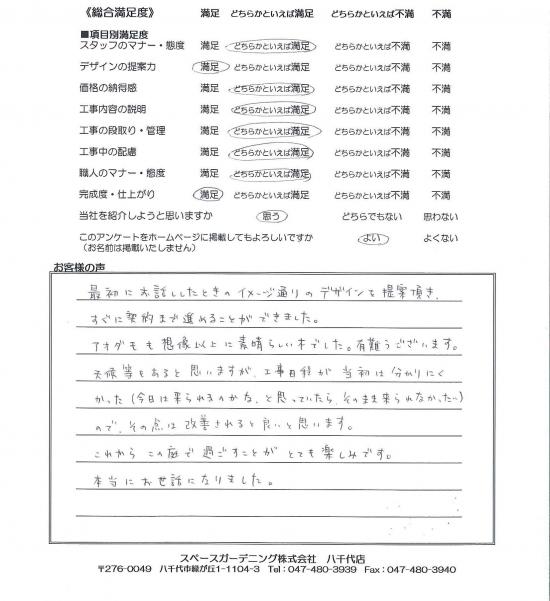 《総合満足度》 満足 どちらかといえば満足 どちらかといえば不満 不満
■項目別満足度
スタッフのマナー・態度 満足 どちらかといえば満足 どちらかといえば不満 不満
デザインの提案力 満足 どちらかといえば満足 どちらかといえば不満 不満
価格の納得感 満足 どちらかといえば満足 どちらかといえば不満 不満
工事内容の説明 満足 どちらかといえば満足 どちらかといえば不満 不満
工事の段取り・管理 満足 どちらかといえば満足 どちらかといえば不満 不満
工事中の配慮 満足 どちらかといえば満足 どちらかといえば不満 不満
職人のマナー・態度 満足 どちらかといえば満足 どちらかといえば不満 不満
完成度・仕上がり 満足 どちらかといえば満足 どちらかといえば不満 不満
当社を紹介しようと思いますか 思う どちらでもない 思わない
このアンケートをホームページに掲載してもよろしいですか よい よくない
(お名前は掲載いたしません)
お客様の声
最初にお話ししたときのイメージ通りのデザインを提案頂き、
すぐに契約まで進めることができました。
アオダモも想像以上に素晴らしい木でした。有難うございます。
天候等もあると思いますが、工事日程が当初は分かりにく
かった(今日は来られるのかな、と思っていたら、そのまま来られなかった…)
ので、その点は改善されると良いと思います。
これからこの庭で過ごすことがとても楽しみです。
本当にお世話になりました。
スペースガーデニング株式会社 八千代店
〒276-0049 八千代市緑が丘1-1104-3 Tel:047-480-3939 Fax:047-480-3940